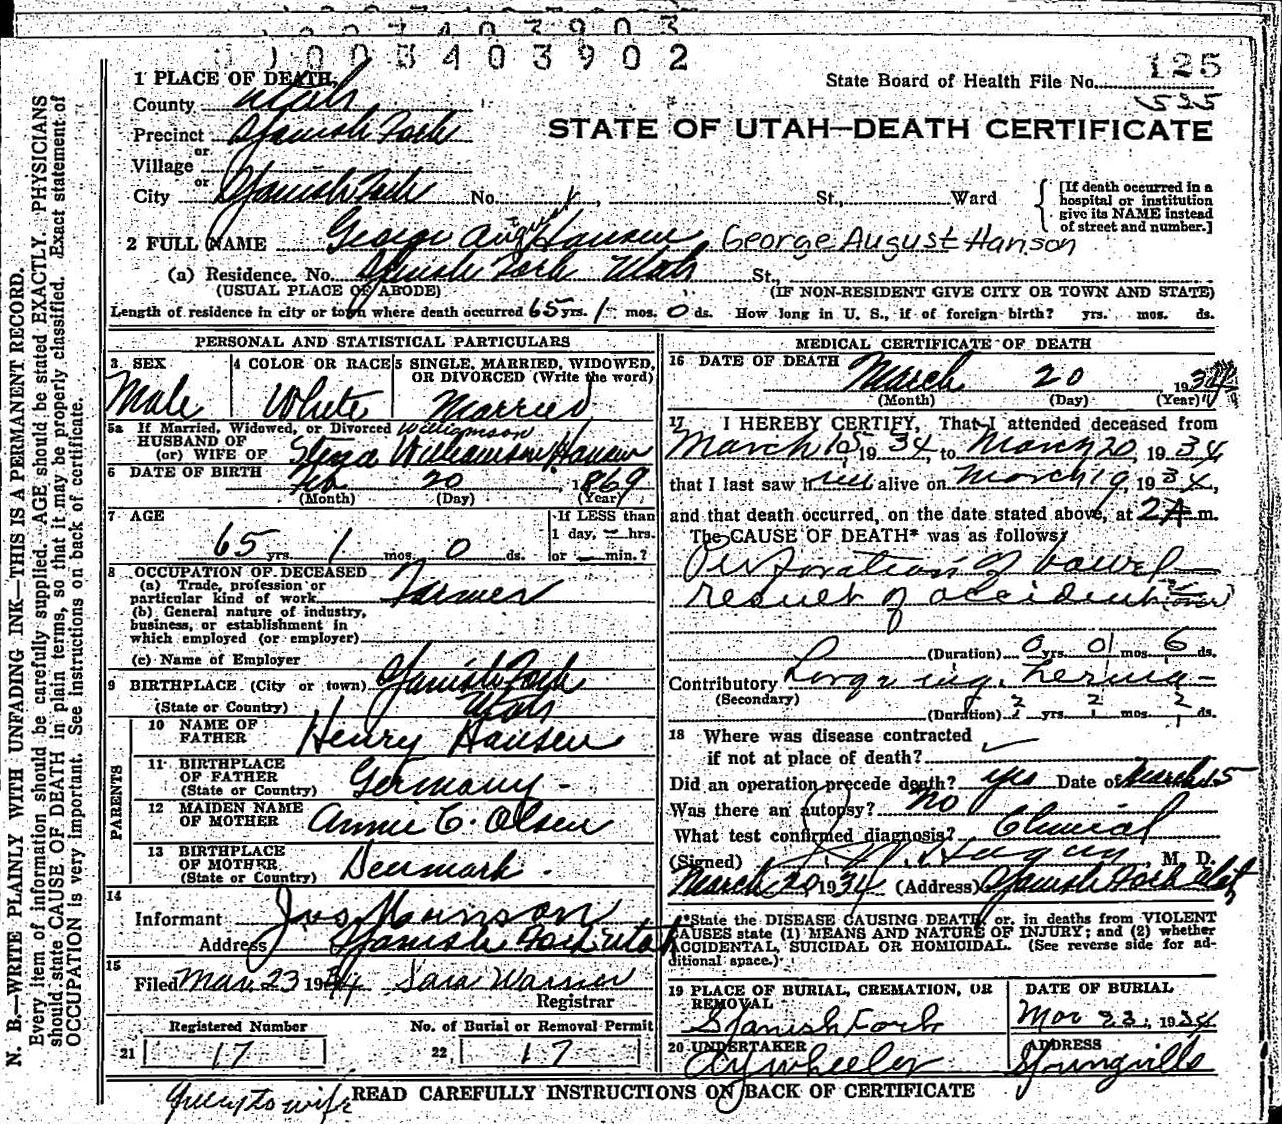 1003403903
1003403902
125
State Board of Health File No.
535
1 PLACE OF DEATH
County Utah
STATE OF UTAH—DEATH CERTIFICATE
Precinct Spanish Fork
or
Village
or
City Spanish Fork No. St., Ward
[If death occurred in a hospital or institution give its NAME instead of street and number.]
2 FULL NAME George August Hansen George August Hanson
(a) Residence. No. Spanish Fork Utah St.,
(USUAL PLACE OF ABODE) (IF NON-RESIDENT GIVE CITY OR TOWN AND STATE)
Length of residence in city or town where death occurred 65 yrs. 1 mos. 0 ds. How long in U. S., if of foreign birth? yrs. mos. ds.
PERSONAL AND STATISTICAL PARTICULARS
3 SEX Male
4 COLOR OR RACE White
5 SINGLE, MARRIED, WIDOWED, OR DIVORCED (Write the word) Married
5a If Married, Widowed, or Divorced Williamson
HUSBAND OF
(or) WIFE OF Williamson Hansen
6 DATE OF BIRTH Feb 20 1869
(Month) (Day) (Year)
7 AGE
65 yrs. 1 mos. 0 ds.
If LESS than
1 day, — hrs.
or — min.?
8 OCCUPATION OF DECEASED
(a) Trade, profession or
particular kind of work Farmer
(b) General nature of industry,
business, or establishment in
which employed (or employer)
(c) Name of Employer
9 BIRTHPLACE (City or town) Spanish Fork
(State or Country) Utah
PARENTS
10 NAME OF FATHER Henry Hansen
11 BIRTHPLACE OF FATHER (State or Country) Germany -
12 MAIDEN NAME OF MOTHER Annie C. Olsen
13 BIRTHPLACE OF MOTHER (State or Country) Denmark.
14
Informant Jos Hanson
Address Spanish Fork Utah
15
Filed Mar. 23 1934 Sara Warner
Registrar
Registered Number
21 17
No. of Burial or Removal Permit
22 17
MEDICAL CERTIFICATE OF DEATH
16 DATE OF DEATH March 20 1934
(Month) (Day) (Year)
17 I HEREBY CERTIFY, That I attended deceased from
March 15 1934, to March 20, 1934
that I last saw him alive on March 19, 1934,
and that death occurred, on the date stated above, at 2 A m.
The CAUSE OF DEATH* was as follows:
Perforation of bowel
result of accident (over)
(Duration) 0 yrs. 0 mos. 6 ds.
Contributory hernia -
(Secondary)
(Duration) ? yrs. ? mos. ? ds.
18 Where was disease contracted
if not at place of death?
Did an operation precede death? yes Date of March 15
Was there an autopsy? No
What test confirmed diagnosis? Clinical
(Signed) Hagan, M. D.
March 20 1934 (Address) Spanish Fork Utah
*State the DISEASE CAUSING DEATH, or, in deaths from VIOLENT
CAUSES state (1) MEANS AND NATURE OF INJURY; and (2) whether
ACCIDENTAL, SUICIDAL OR HOMICIDAL. (See reverse side for ad-
ditional space.)
19 PLACE OF BURIAL, CREMATION, OR REMOVAL Spanish Fork
DATE OF BURIAL Mar 23, 1934
20 UNDERTAKER A Y Wheeler
ADDRESS Springville
READ CAREFULLY INSTRUCTIONS ON BACK OF CERTIFICATE
to wife
N. B.—WRITE PLAINLY WITH UNFADING INK—THIS IS A PERMANENT RECORD.
Every item of information should be carefully supplied. AGE should be stated EXACTLY. PHYSICIANS
should state CAUSE OF DEATH in plain terms, so that it may be properly classified. Exact statement of
OCCUPATION is very important. See instructions on back of certificate.